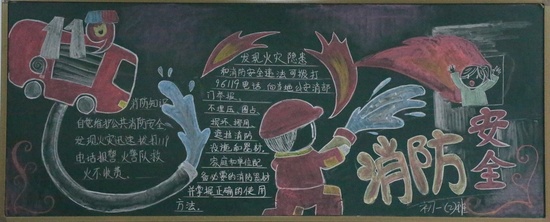 消防知识
自觉维护公共消防安全
发现火灾迅速拨打119
电话报警,火警队救
火不收费。
发现火灾隐患
和消防安全违法可拨打
96119电话,向当地公安消防
门举报。
不埋压、圈占、
损坏、挪用、
遮挡消防
设施和器材
家庭和单位配
备必要的消防器材
并掌握正确的使用
方法。
消防安全
初一(2)班